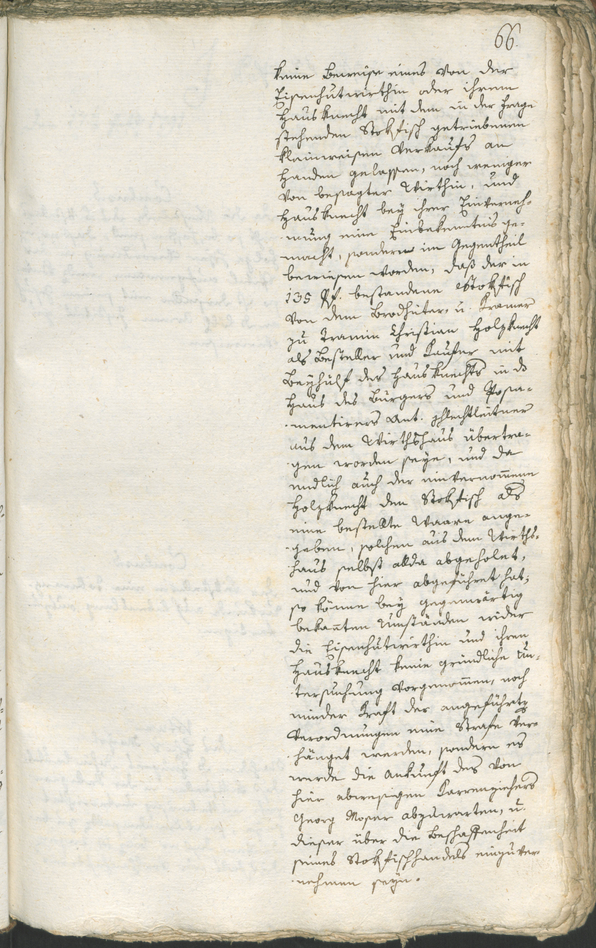 66.
keine Beweise eines von der
Eisenhutwirthin oder ihrem
Hausknecht mit dem in der Frage
stehenden Stokfisch getriebenen
kleinweisen Verkaufs an
Handen gelassen, noch weniger
von besagter Wirthin, und
Hausknecht bey ihrer Einverneh-
mung eine Einbekenntnis ge-
macht, sondern im Gegentheil
bewiesen worden, daß der in
135 ℔. bestandene Stokfisch
von dem Brodhüter, u. Kramer
zu Tramin Christian Holzknecht
als Besteller und Käufer mit
Beyhülf des Hausknechts in das
Haus des Bürgers und Posa-
mentirers Ant. Schlechtleitner
aus dem Wirthshaus übertra-
gen worden seye, und da
endlich auch der einvernommene
Holzknecht den Stokfisch als
eine bestellte Waare ange-
geben, solchen aus dem Wirths-
haus selbst allda abgeholet,
und von hier abgeführet hat;
so könne bey gegenwärtig
bekanten Umständen wider
die Eisenhutwirthin und ihren
Hausknecht keine gründliche Un-
tersuchung vorgenommen, noch
minder Kraft der angeführten
Verordnungen eine Strafe ver-
hänget werden, sondern es
werde die Ankunft des von
hier abwesigen Karrenziehers
Georg Moser abzuwarten, u.
dieser über die Beschaffenheit
seines Stokfischhandels einzuver-
nehmen seyn.